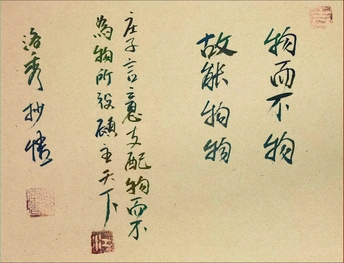 物而不物
故能物物
庄子言意支配物而不
為物所役顾主天下
洛秀抄情